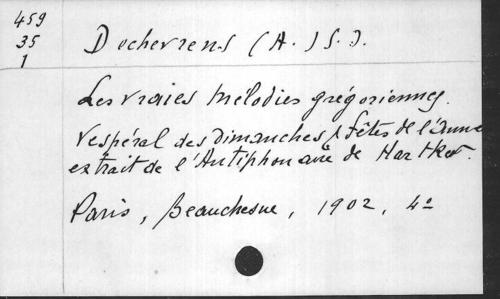 459
35
1
Dechevrens (A.) S.J.
Les vraies mélodies grégoriennes.
Vespéral des Dimanches & Fêtes de l'année
extrait de l'Antiphonaire de Hartker.
Paris, Beauchesne, 1902, 4º